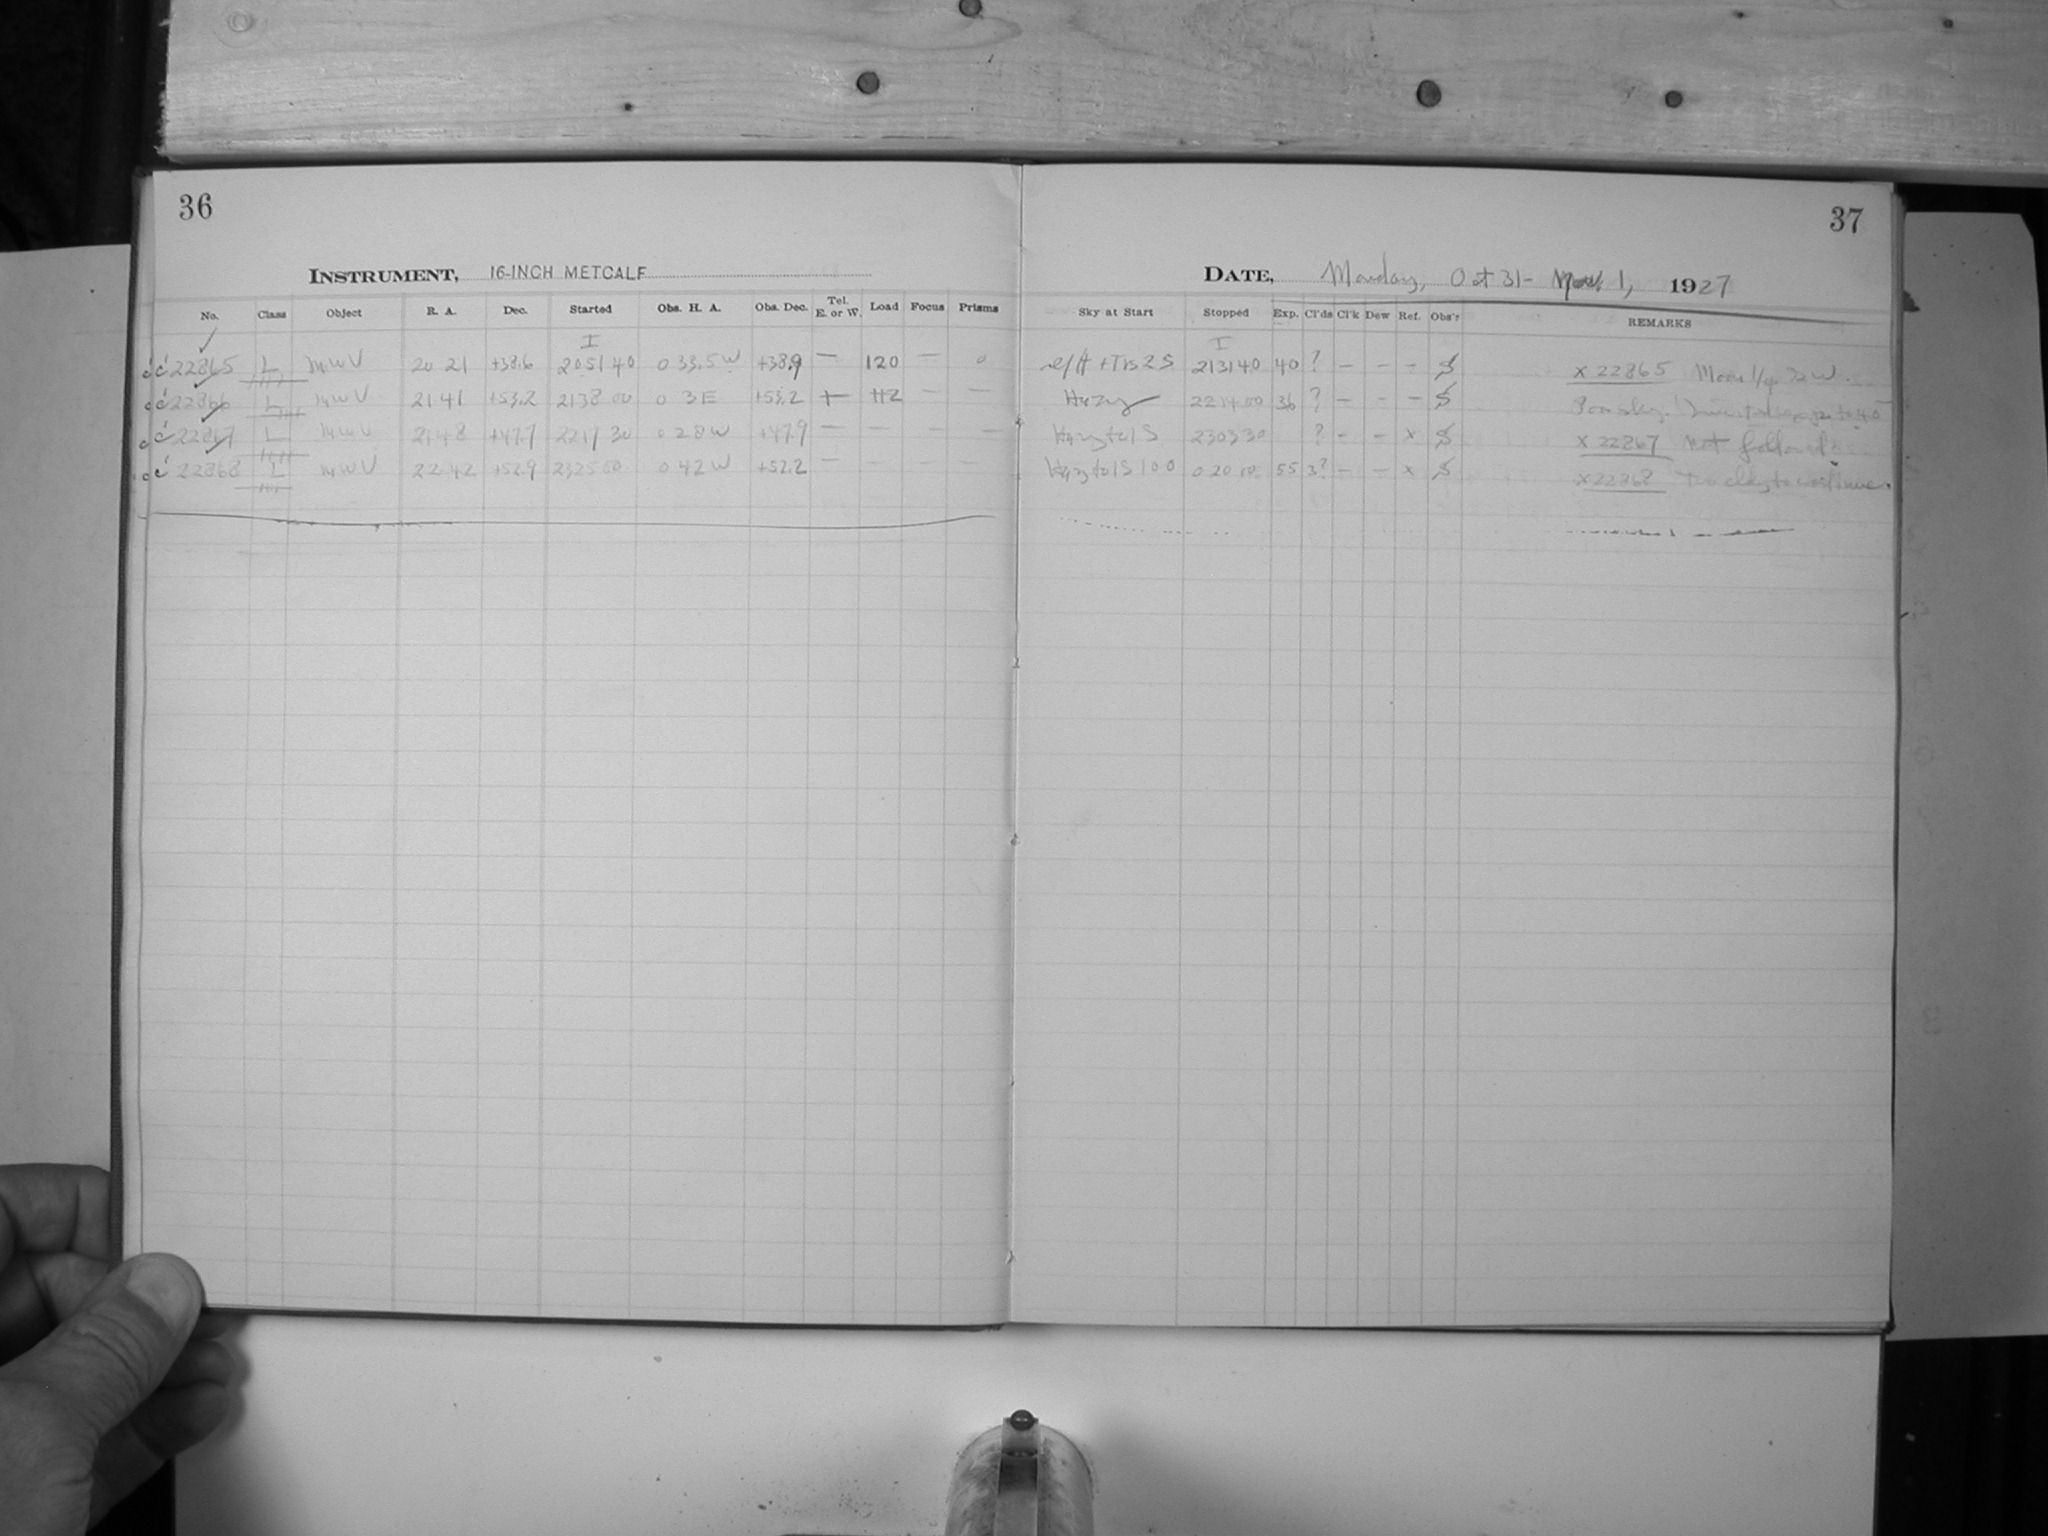 36
INSTRUMENT, 16-INCH METCALF
No. Class Object R. A. Dec. Started Obs. H. A. Obs. Dec. Tel. E. or W. Load Focus Prisms
I
22865 L MWV 20 21 +38.6 205140 0 33.5 W +38.9 — 120 — 0
22866 L MWV 2141 +53.2 2138 00 0 3 E +53.2 + 112 — —
22867 L MWV 2148 +47.7 2217 30 0 28 W +47.9 — — — —
22868 L MWV 22 42 +52.9 232500 0 42 W +52.2 — — — —
37
DATE, Monday, Oct 31 - Nov. 1, 1927
Sky at Start Stopped Exp. Cl'ds Cl'k Dew Ref. Obs'r REMARKS
I
213140 40 ? — — — $ X 22865 Moon
Hazy 221400 36 ? — — — $
Hazy to 1 S 230330 ? — — x $ X 22867 Not followed
Hazy to 1 S 100 0 20 55 3? — — x $ X 22868 Too cldy to continue.